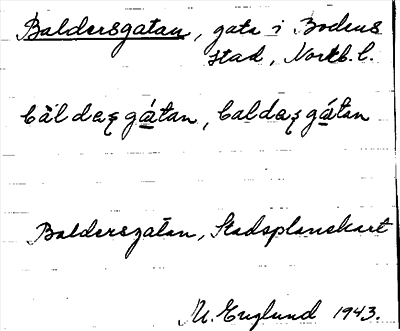 Baldersgatan, gata i Bodens
stad, Nortb. l.
bàldaʂgátan, baldaʂgátan
Baldersgatan, Stadsplanekart
M. Englund 1943.